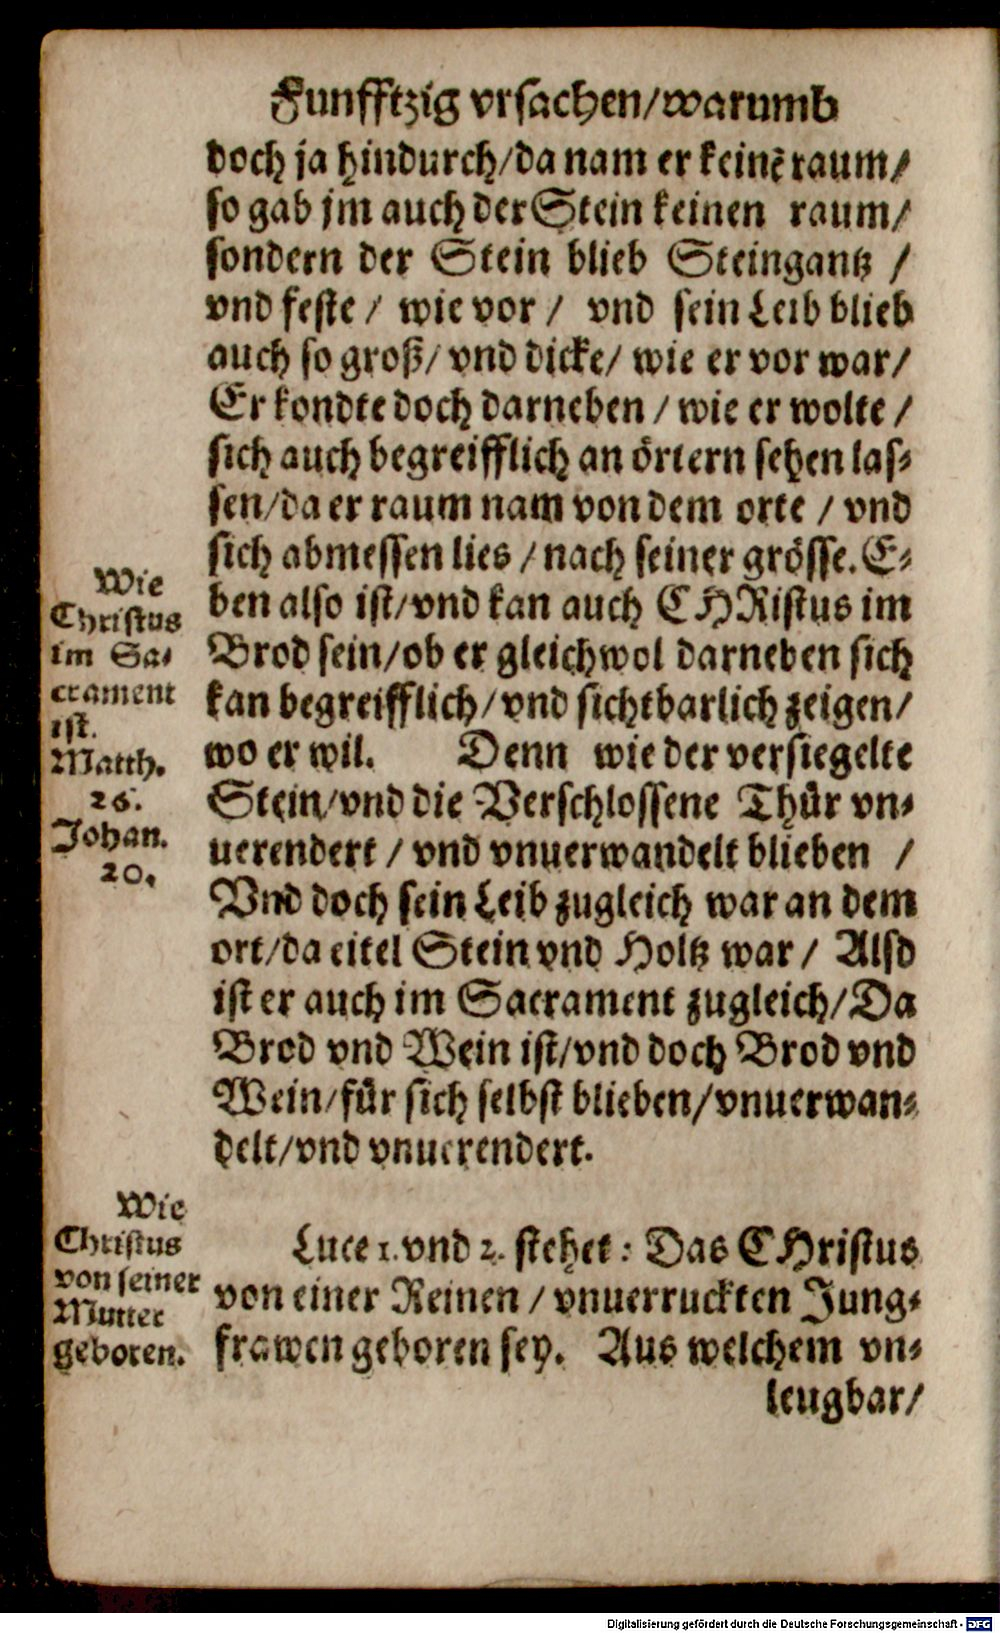 Funfftzig vrsachen/warumb
doch ja hindurch/da nam er keinẽ raum/
so gab jm auch der Stein keinen raum/
sondern der Stein blieb Steingantz /
vnd feste / wie vor / vnd sein Leib blieb
auch so groß/ vnd dicke/ wie er vor war/
Er kondte doch darneben / wie er wolte /
sich auch begreifflich an örtern sehen las-
sen/da er raum nam von dem orte / vnd
sich abmessen lies / nach seiner grösse. E-
ben also ist/vnd kan auch CHRistus im
Brod sein/ob er gleichwol darneben sich
kan begreifflich/vnd sichtbarlich zeigen/
wo er wil. Denn wie der versiegelte
Stein/vnd die Verschlossene Thür vn-
uerendert / vnd vnuerwandelt blieben /
Vnd doch sein Leib zugleich war an dem
ort/da eitel Stein vnd Holtz war / Also
ist er auch im Sacrament zugleich/Da
Brod vnd Wein ist/vnd doch Brod vnd
Wein/für sich selbst blieben/vnuerwan-
delt/vnd vnuerendert.
Wie
Christus
im Sa-
crament
ist.
Matth.
26.
Johan.
20.
Luce 1. vnd 2. stehet: Das CHristus
von einer Reinen / vnuerruckten Jung-
frawen geboren sey. Aus welchem vn-
leugbar/
Wie
Christus
von seiner
Mutter
geboren.
Digitalisierung gefördert durch die Deutsche Forschungsgemeinschaft - DFG